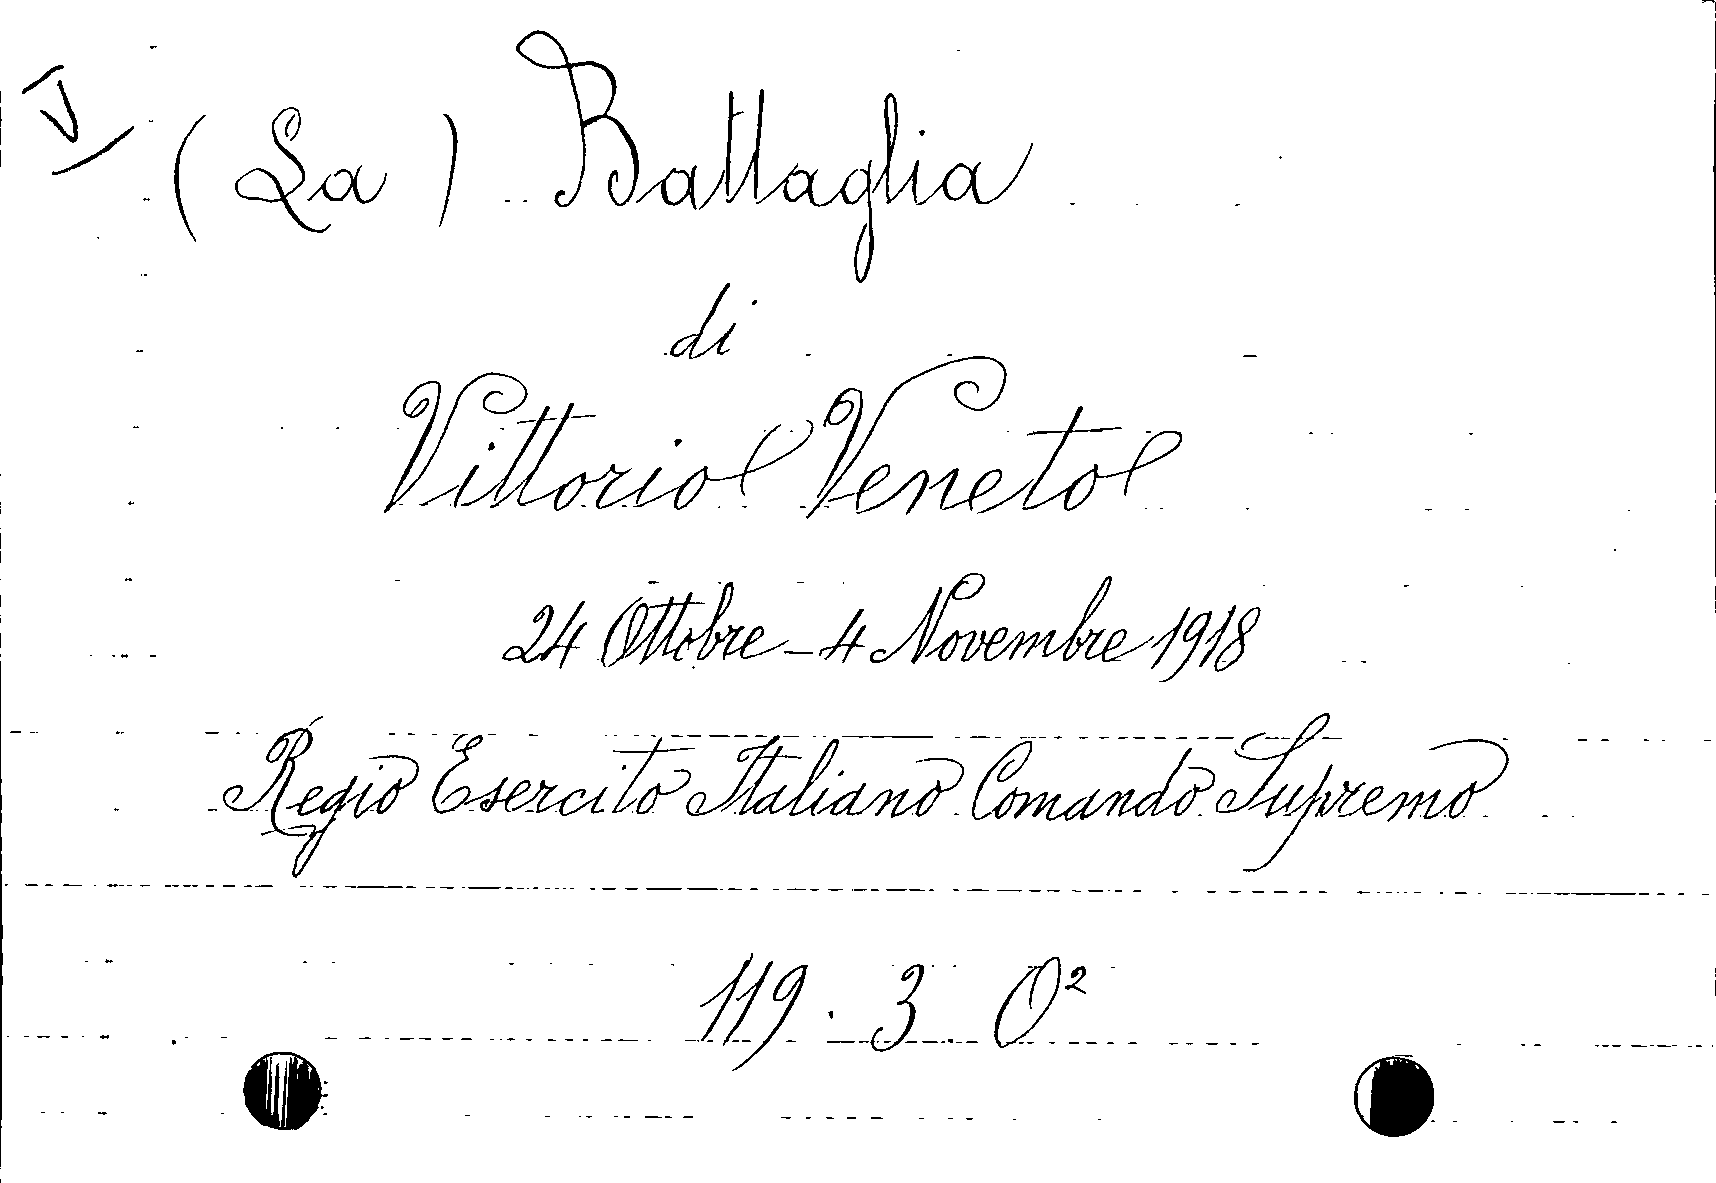 V
(La) Battaglia
di
Vittorio Veneto
24 Ottobre - 4 Novembre 1918
Regio Esercito Italiano Comando Supremo
119. 3. O²